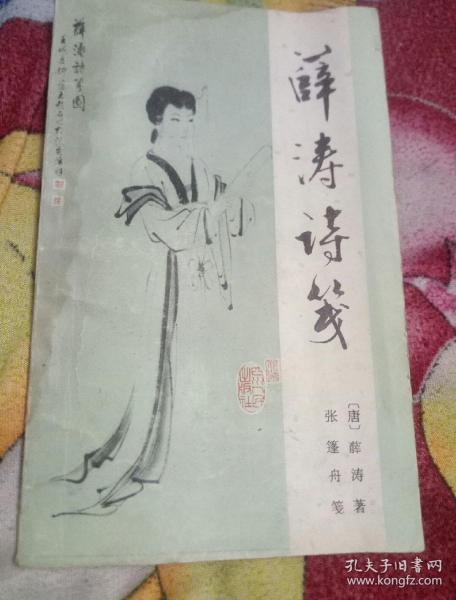 薛涛诗笺
〔唐〕薛涛著
张篷舟笺
薛涛诗笺图
孔夫子旧书网
www.kongfz.com